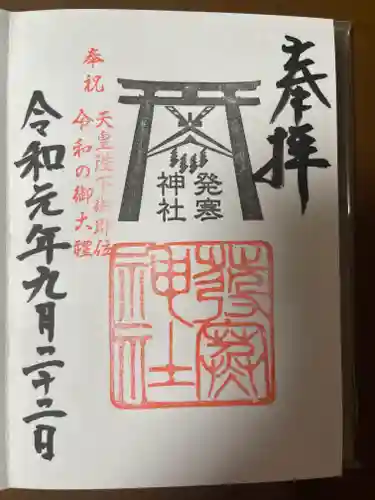 奉拝
発寒
神社
発寒
神社
奉祝
天皇陛下御即位
令和の御大礼
令和元年九月二十二日